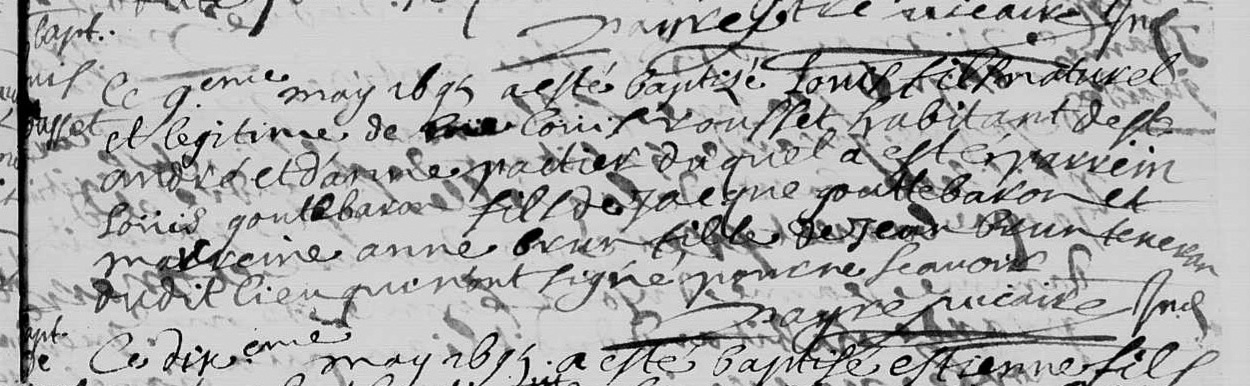 bapt.
Ce 9eme may 1695 a esté baptizé Louis fils naturel
et legitime de Louis rousset habitant de st
andré et d'anne patier duquel a esté parrein
Louis gouttebaron fils de Jacque gouttebaron et
marreine anne brun fille de Jean brun
dudit lieu qui n'ont signé pour ne scavoir
vicaire
Ce dixeme may 1695 a esté baptisé estienne fils